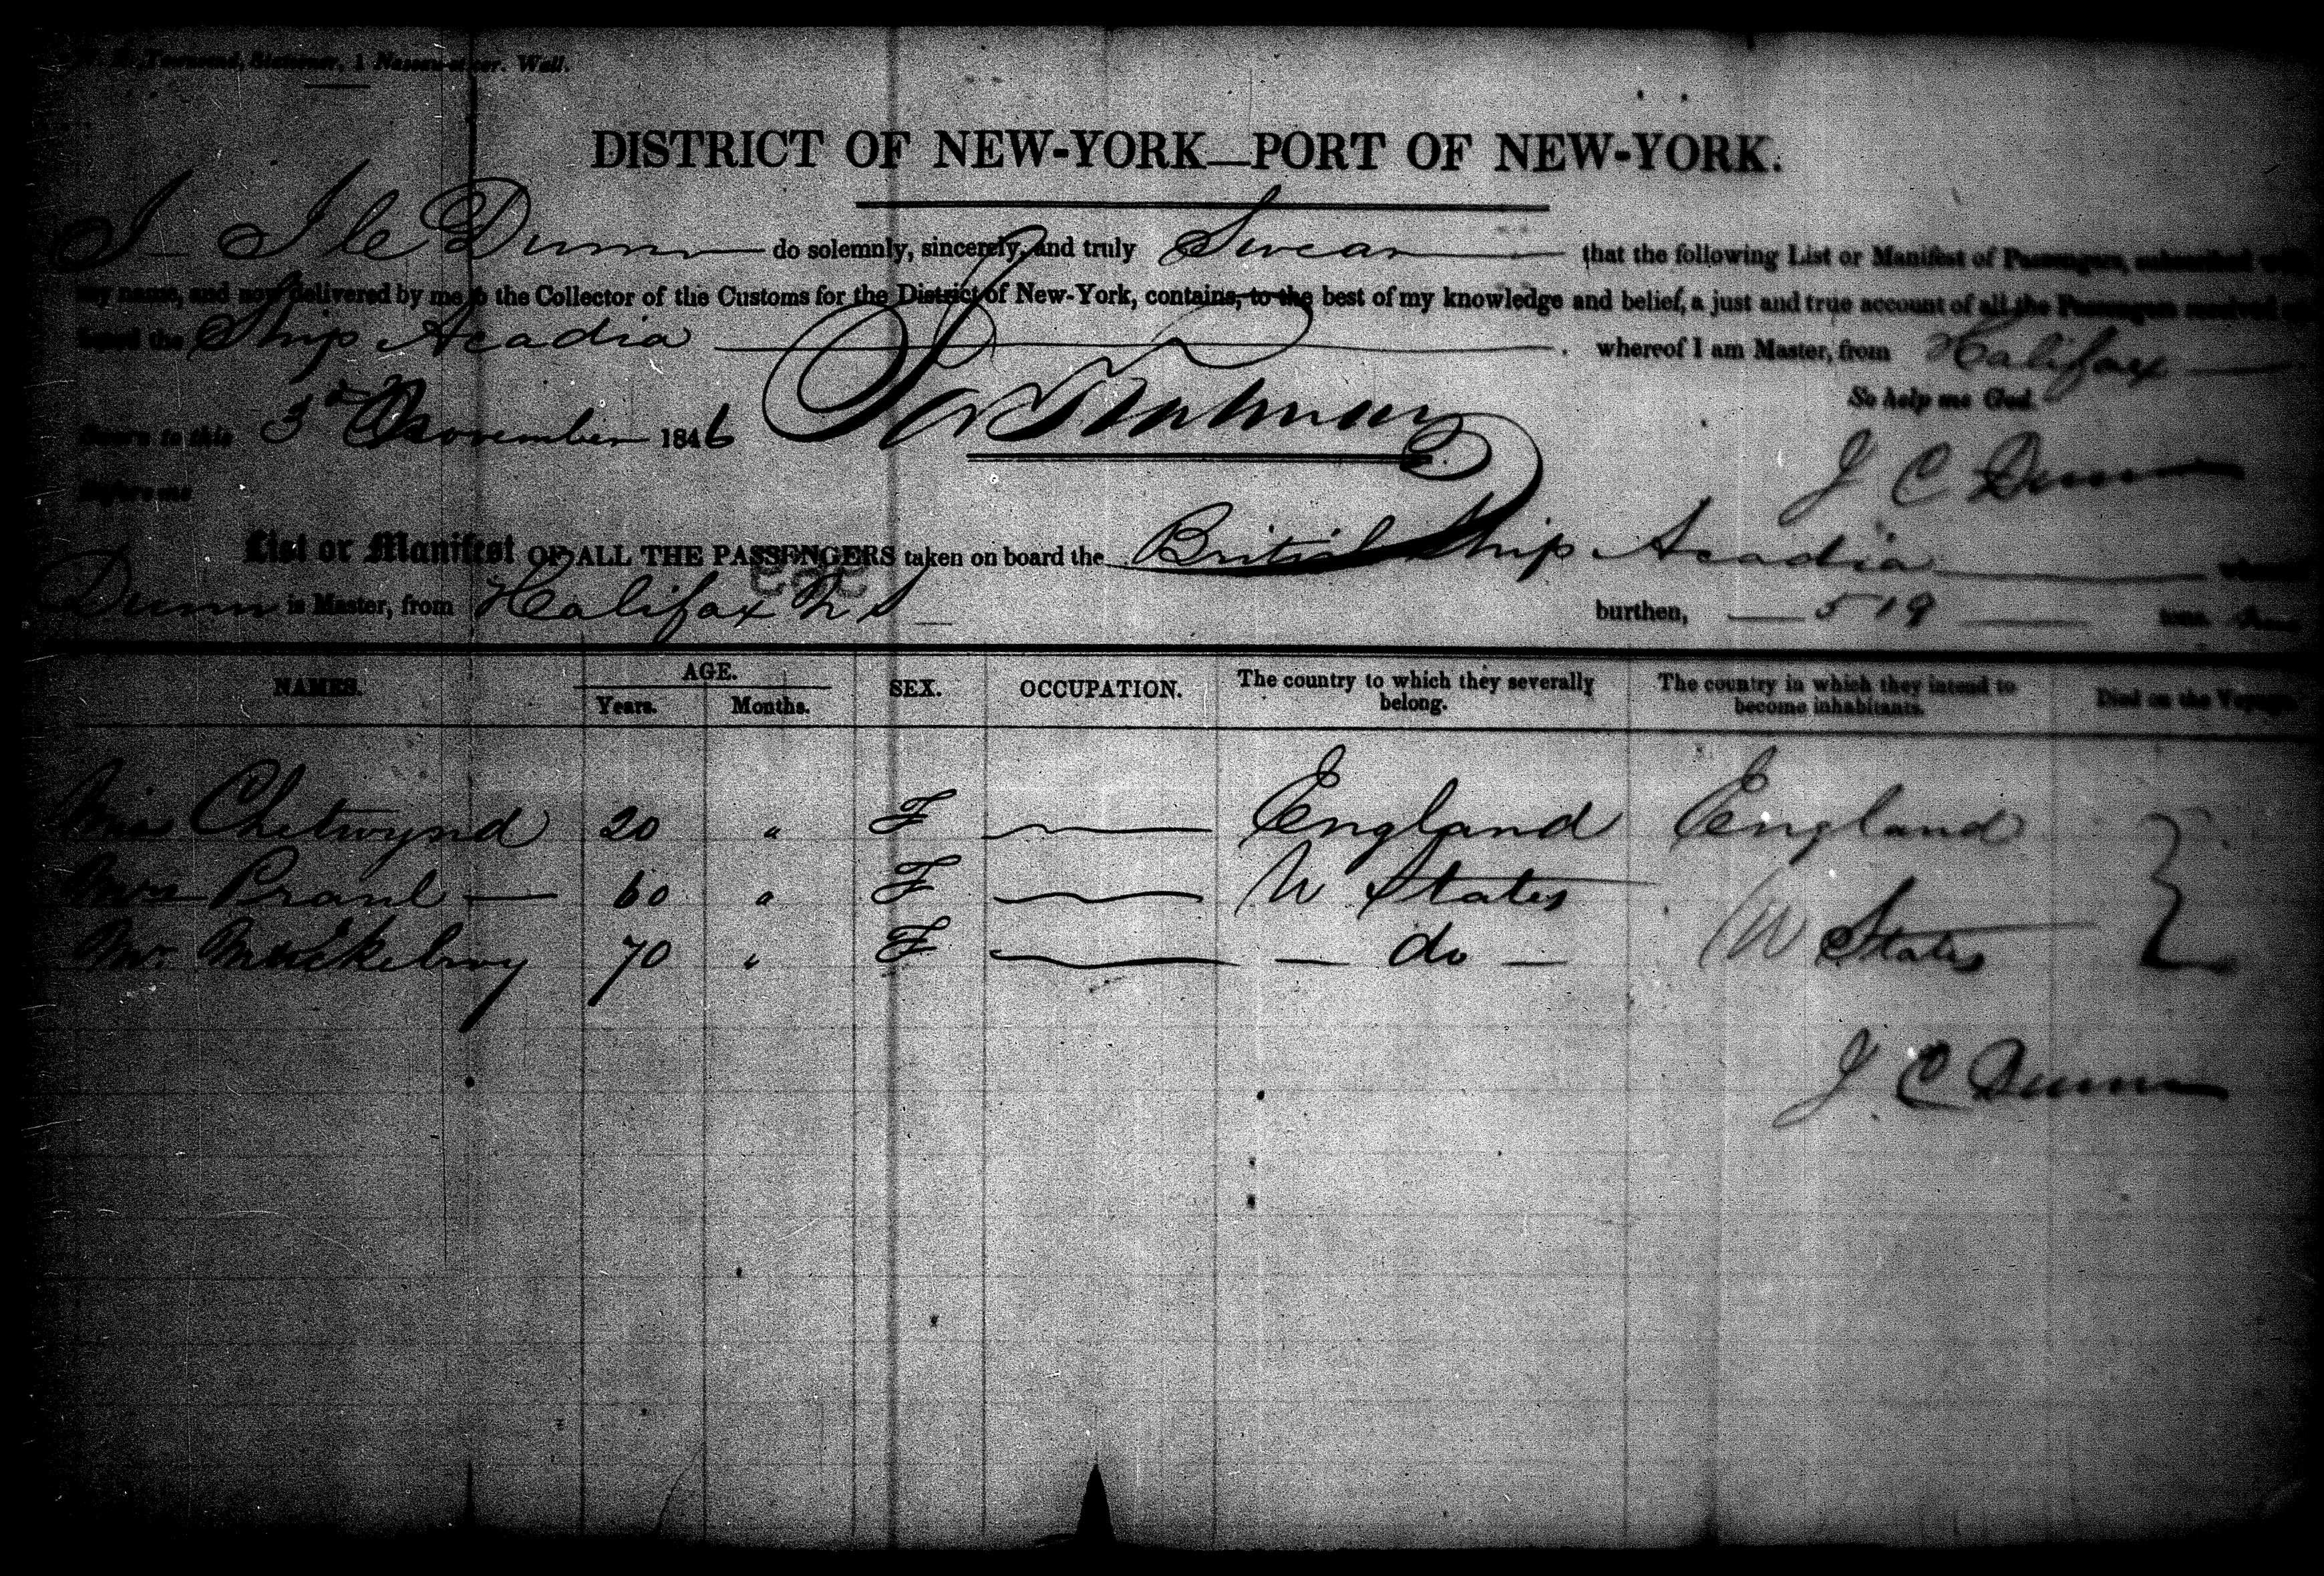 Townsend, Stationer, 1 Nassau-st cor. Wall.
DISTRICT OF NEW-YORK—PORT OF NEW-YORK.
I J C Dunn do solemnly, sincerely, and truly Swear that the following List or Manifest of Passengers, subscribed with
my name, and now delivered by me to the Collector of the Customs for the District of New-York, contains, to the best of my knowledge and belief, a just and true account of all the Passengers received on
board the Ship Acadia whereof I am Master, from Halifax
So help me God.
Sworn to this 3d November 1846
J C Dunn
Before me
List or Manifest OF ALL THE PASSENGERS taken on board the British Ship Acadia whereof
Dunn is Master, from Halifax N S burthen, 519 tons
NAMES. AGE. SEX. OCCUPATION. The country to which they severally belong. The country in which they intend to become inhabitants. Died on the Voyage.
Years. Months.
Miss Chetwynd 20 " F England England
Mrs 60 " F U States
Mr 70 " F do U States
J. C Dunn